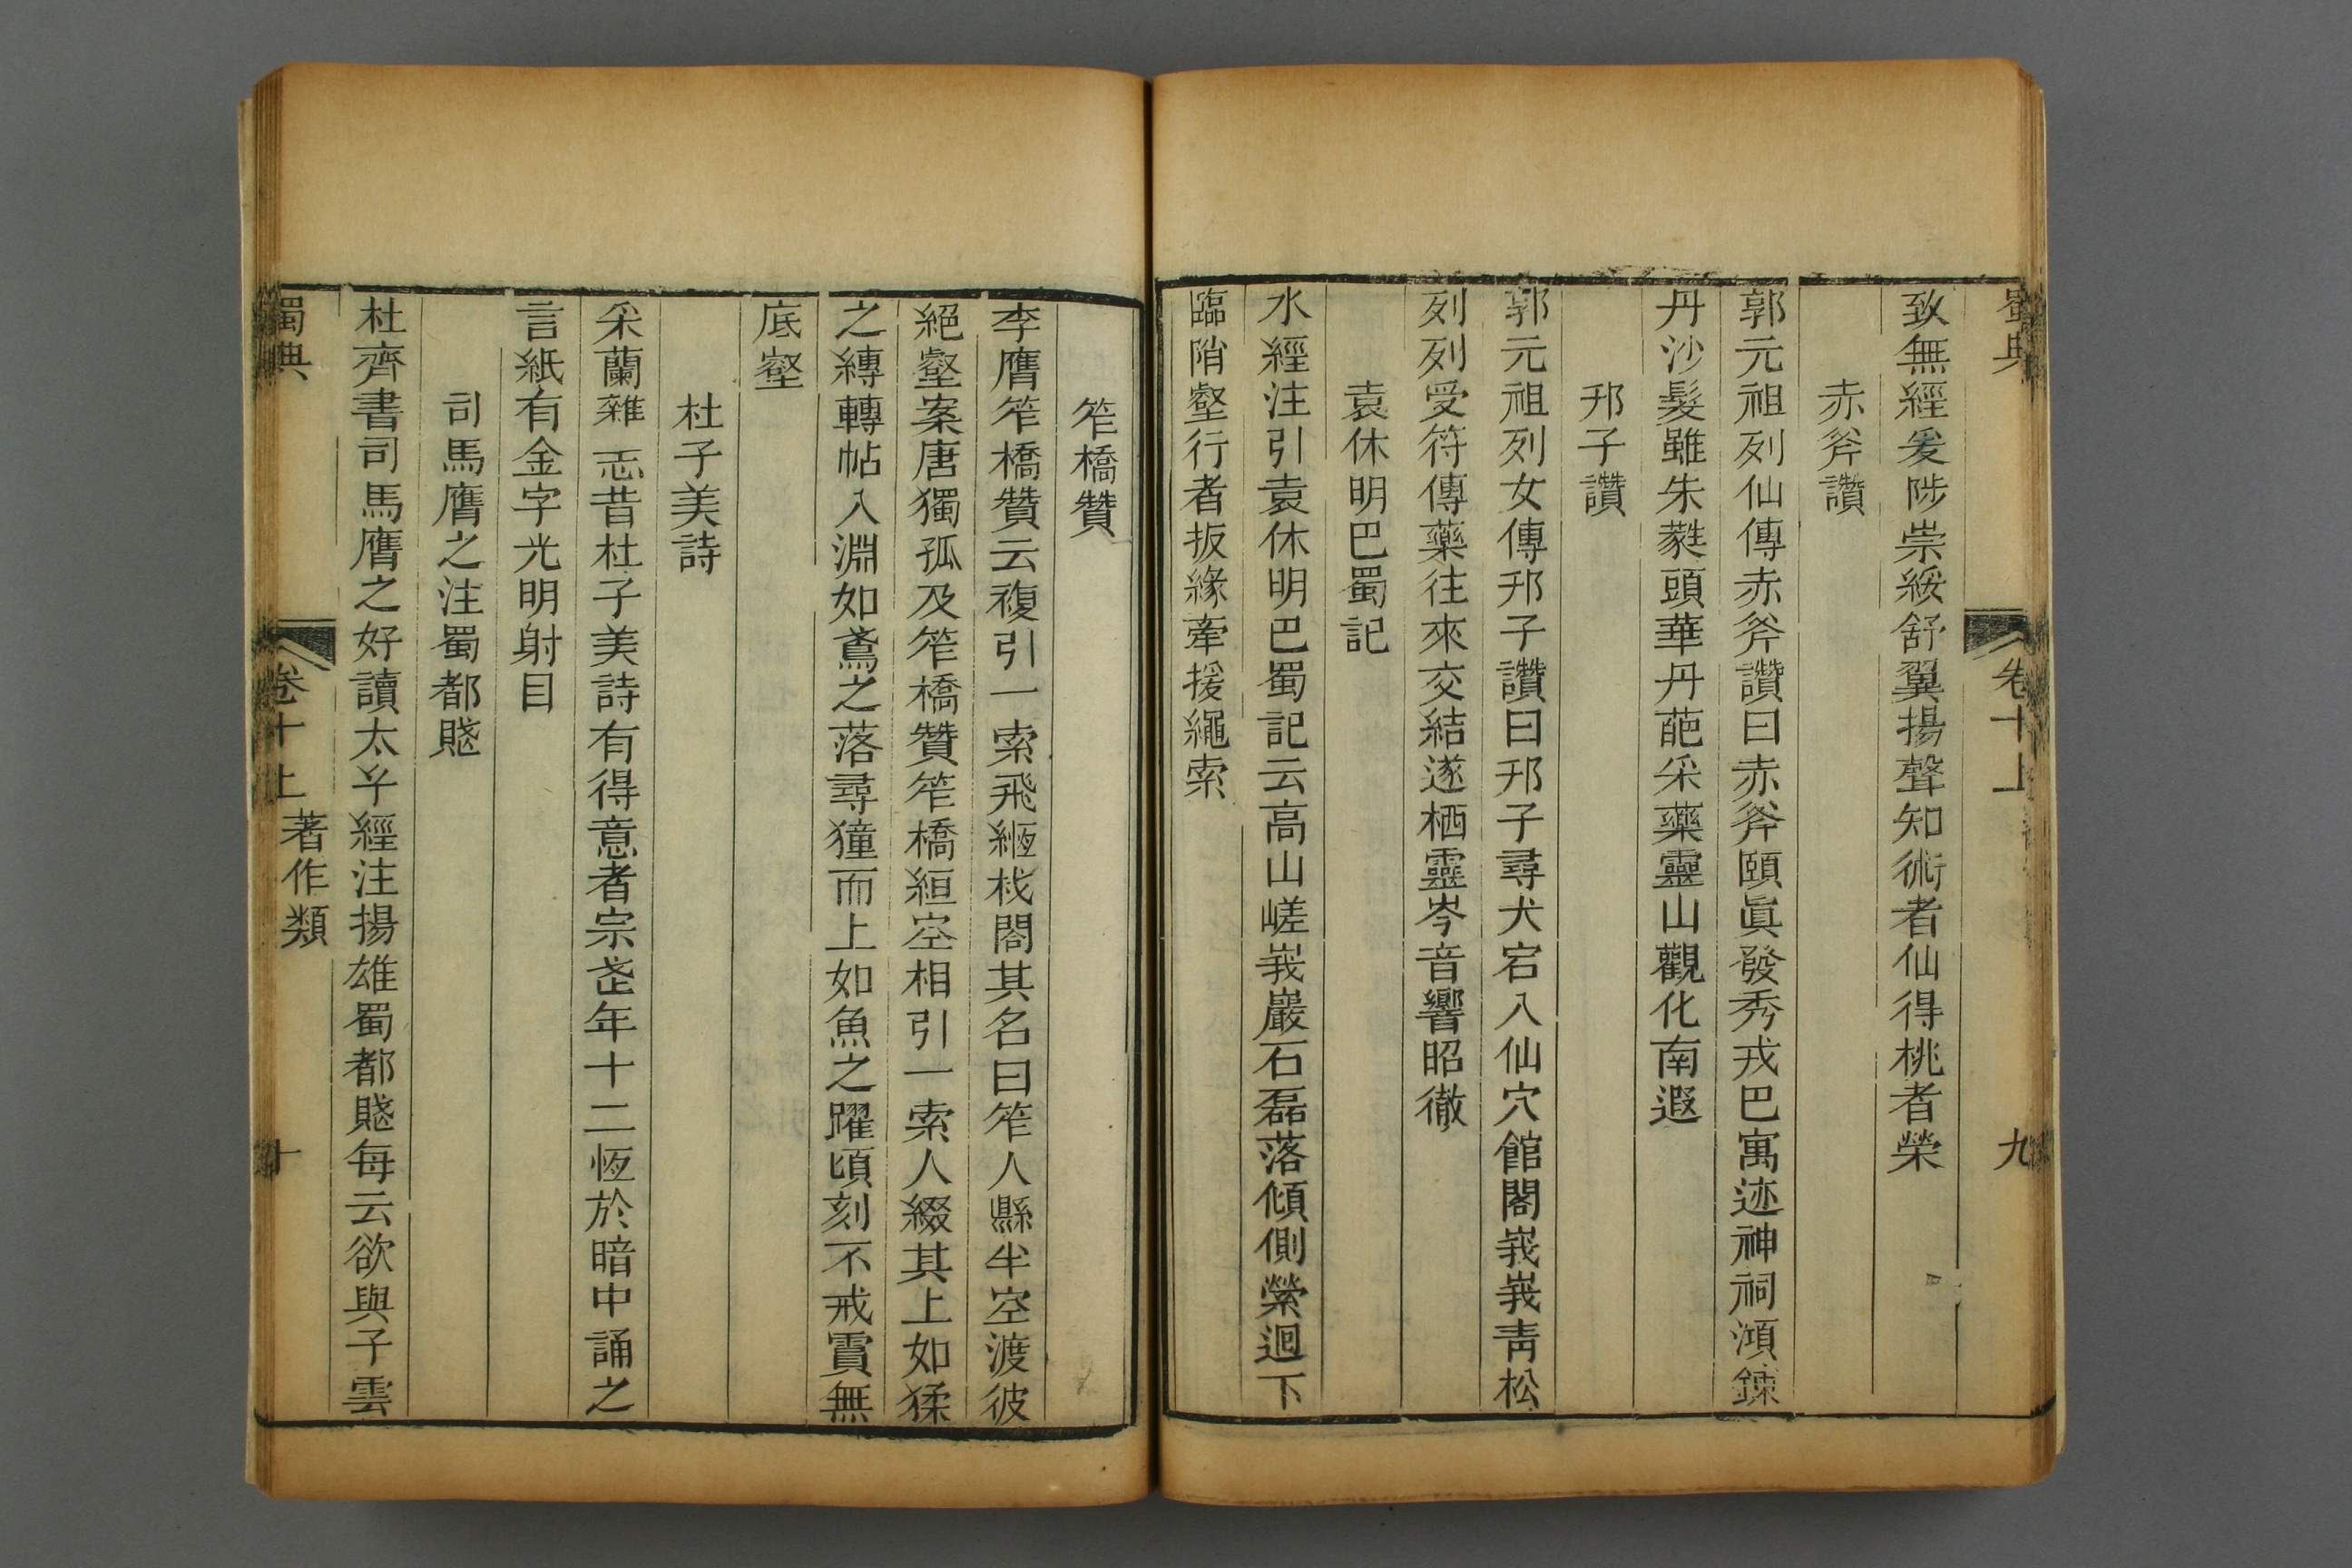 蜀典 卷十上 九
致無經爰陟崇綏舒翼揚聲知術者仙得桃者榮
赤斧讚
郭元祖列仙傳赤斧讚曰赤斧頤眞發秀戎巴寓迹神祠澒鍊
丹沙髮雖朱蕤頭華丹葩采藥靈山觀化南遐
邘子讚
郭元祖列女傳邘子讚曰邘子尋犬宕入仙穴館閣峩峩靑松
列列受符傳藥往來交結遂栖靈岑音響昭徹
袁休明巴蜀記
水經注引袁休明巴蜀記云高山嵯峩巖石磊落傾側縈迴下
臨陗壑行者扳緣牽援繩索
笮橋贊
李膺笮橋贊云複引一索飛絙栈閣其名曰笮人縣半空渡彼
絕壑案唐獨孤及笮橋贊笮橋絙空相引一索人綴其上如猱
之縳轉帖入淵如鳶之落尋獞而上如魚之躍頃刻不戒霣無
底壑
杜子美詩
采蘭雜志昔杜子美詩有得意者宗武年十二恆於暗中誦之
言紙有金字光明射目
司馬膺之注蜀都賤
杜齊書司馬膺之好讀太𤣥經注揚雄蜀都賤每云欲與子雲
蜀典 卷十上 著作類 十